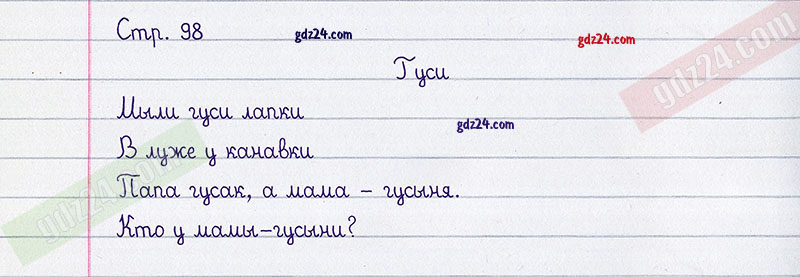 Стр. 98 gdz24.com gdz24.com
Гуси
Мыли гуси лапки
gdz24.com
В луже у канавки
Папа гусак, а мама – гусыня.
Кто у мамы-гусыни?
gdz24.com
gdz24.com